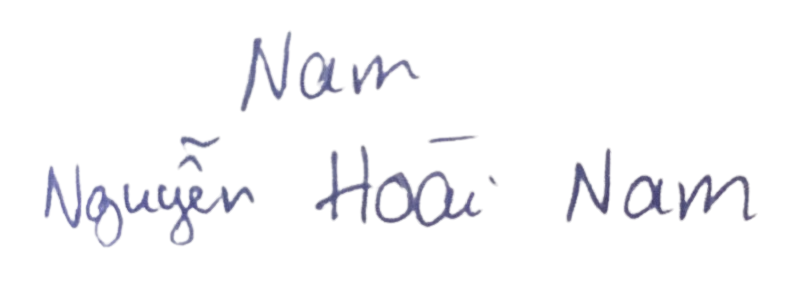 Nam
Nguyễn Hoài Nam